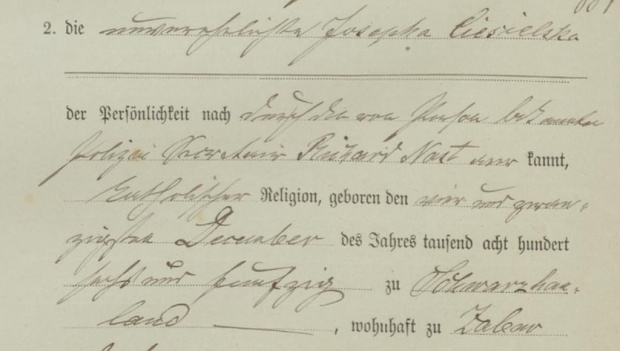 2. die unverehelichte Josepha Ciesielska
der Persönlichkeit nach durch den von Person bekannten
Polizei Secretair Richard Nast aner kannt,
katholischer Religion, geboren den vier und zwan-
zigsten December des Jahres tausend acht hundert
sechs und fünfzig zu Schwarzhau-
land, wohnhaft zu Zabno